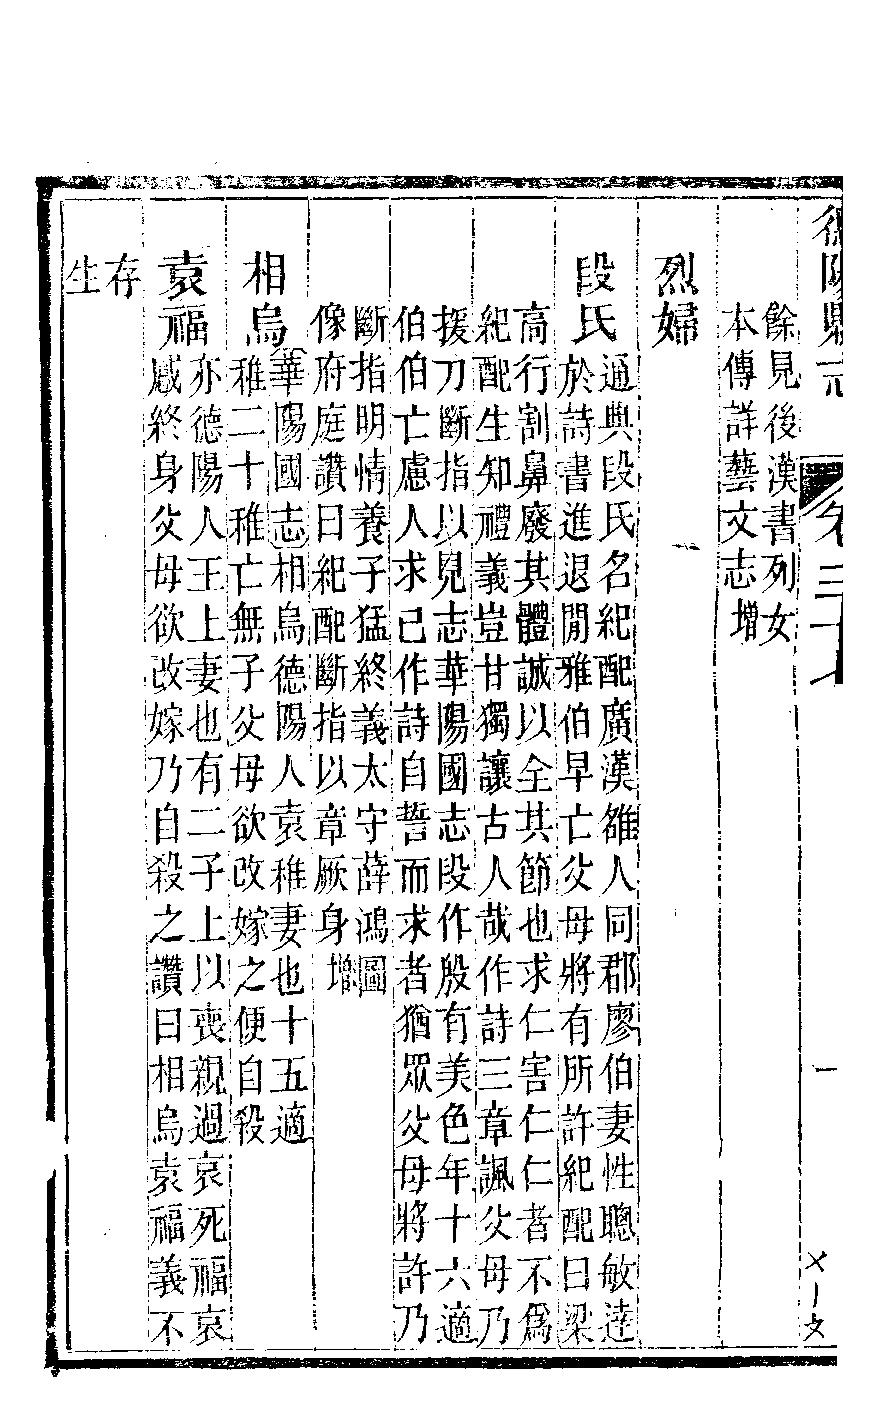 德陽縣志
卷三十
一
餘見後漢書列女
本傳詳藝文志增
烈婦
段氏
通典段氏名紀配廣漢雒人同郡廖伯妻性聰敏達
於詩書進退閒雅伯早亡父母將有所許紀配曰梁
高行割鼻廢其體誠以全其節也求仁害仁仁者不爲
紀配生知禮義豈甘獨讓古人哉作詩三章諷父母乃
援刀斷指以見志華陽國志段作殷有美色年十六適
伯伯亡慮人求己作詩自誓而求者猶眾父母將許乃
斷指明情養子猛終義太守薛鴻圖
像府庭讚曰紀配斷指以章厥身增
相烏
〔華陽國志〕相烏德陽人袁稚妻也十五適
稚二十稚亡無子父母欲改嫁之便自殺
袁福
亦德陽人王上妻也有二子上以喪親過哀死福哀
感終身父母欲改嫁乃自殺之讚曰相烏袁福義不
存
生